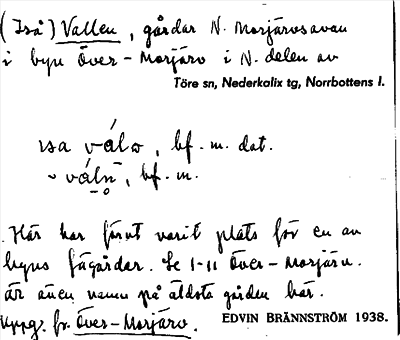 (Iså) Vallen, gårdar N. Morjärvsavan
i byn Över-Morjärv i N. delen av
Töre sn, Nederkalix tg, Norrbottens l.
bf. m. dat.
bf. m.
Här har förut varit plats för en av
byns fägårdar. Se 1-11 Över-Morjärv.
är även namn på äldsta gården här.
Uppg. fr. Över-Morjärv.
EDVIN BRÄNNSTRÖM 1938.